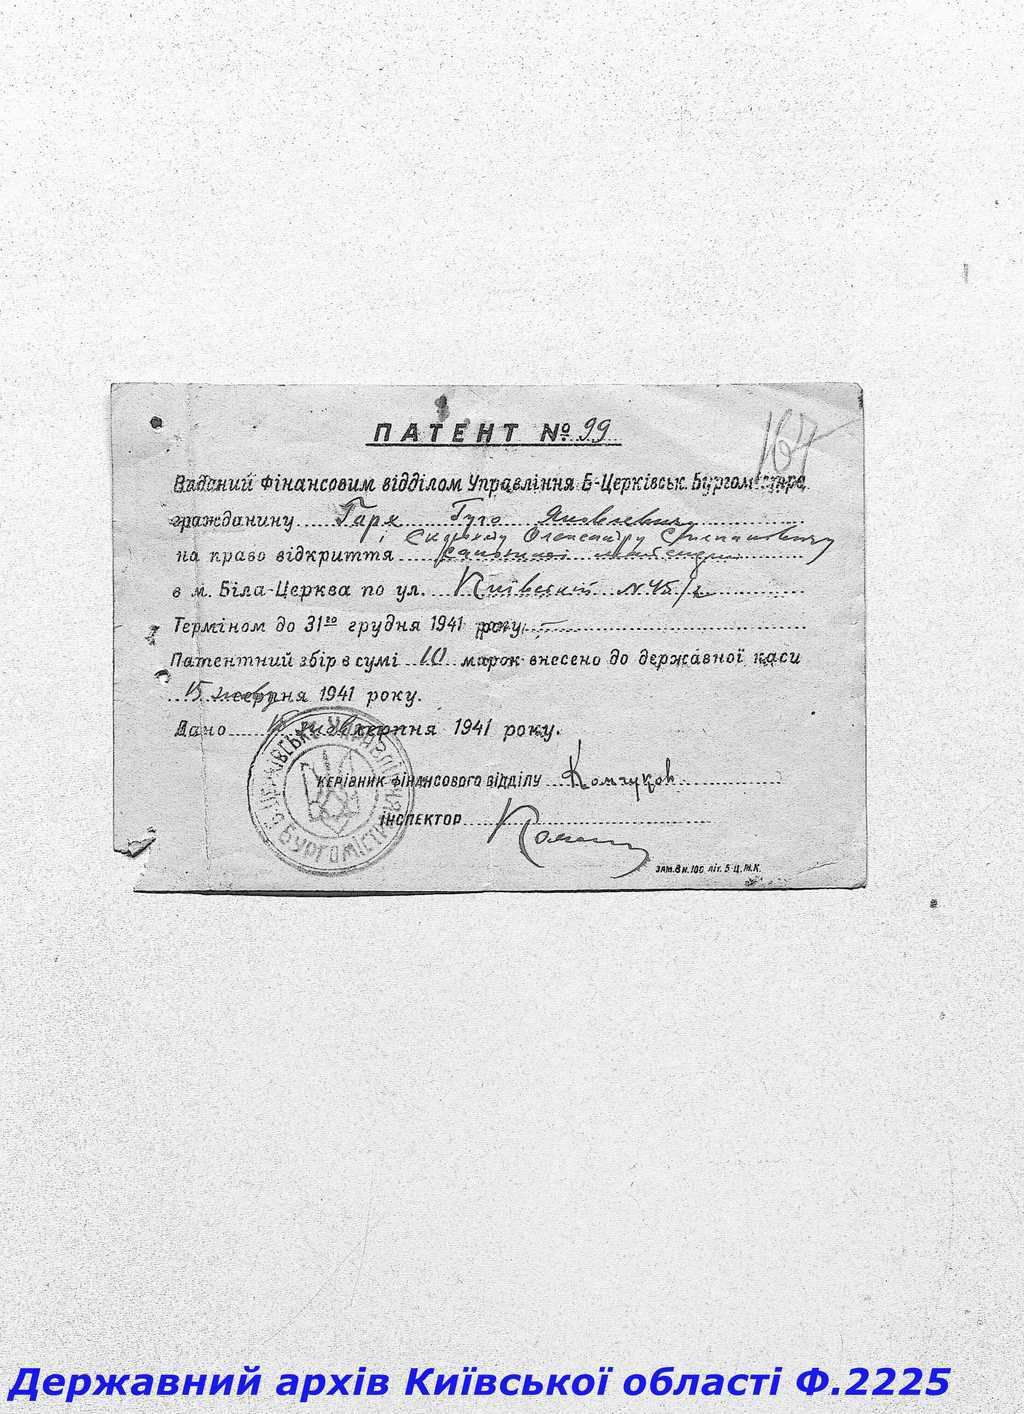 167
ПАТЕНТ № 99
Виданий Фінансовим відділом Управління Б-Церківськ. Бургомістра
гражданину Гаря Гуго Яковлевичу
і Олександру Степановичу
на право відкриття
в м. Біла-Церква по ул. Київській № 45/2
Терміном до 31го грудня 1941 року
Патентний збір в сумі 10 марок внесено до державної каси
15 жовтня серпня 1941 року.
Дано 15 жовт серпня 1941 року.
КЕРІВНИК ФІНАНСОВОГО ВІДДІЛУ
ІНСПЕКТОР
Б.ЦЕРКІВСЬКЕ УПРАВЛІННЯ
БУРГОМІСТРА
ЗАМ.В Н.100 літ. Б-Ц.М.К.
Державний архів Київської області Ф.2225